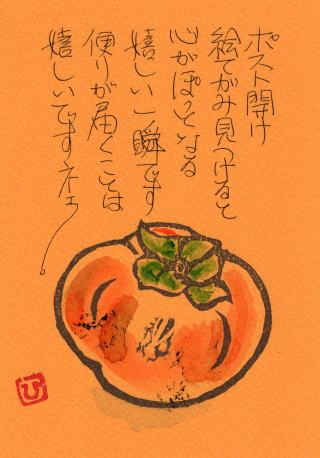 ポスト開け
絵てがみ見つけると
心がぽっとなる
嬉しい一瞬です
便りが届くことは
嬉しいですネェ!
ひ